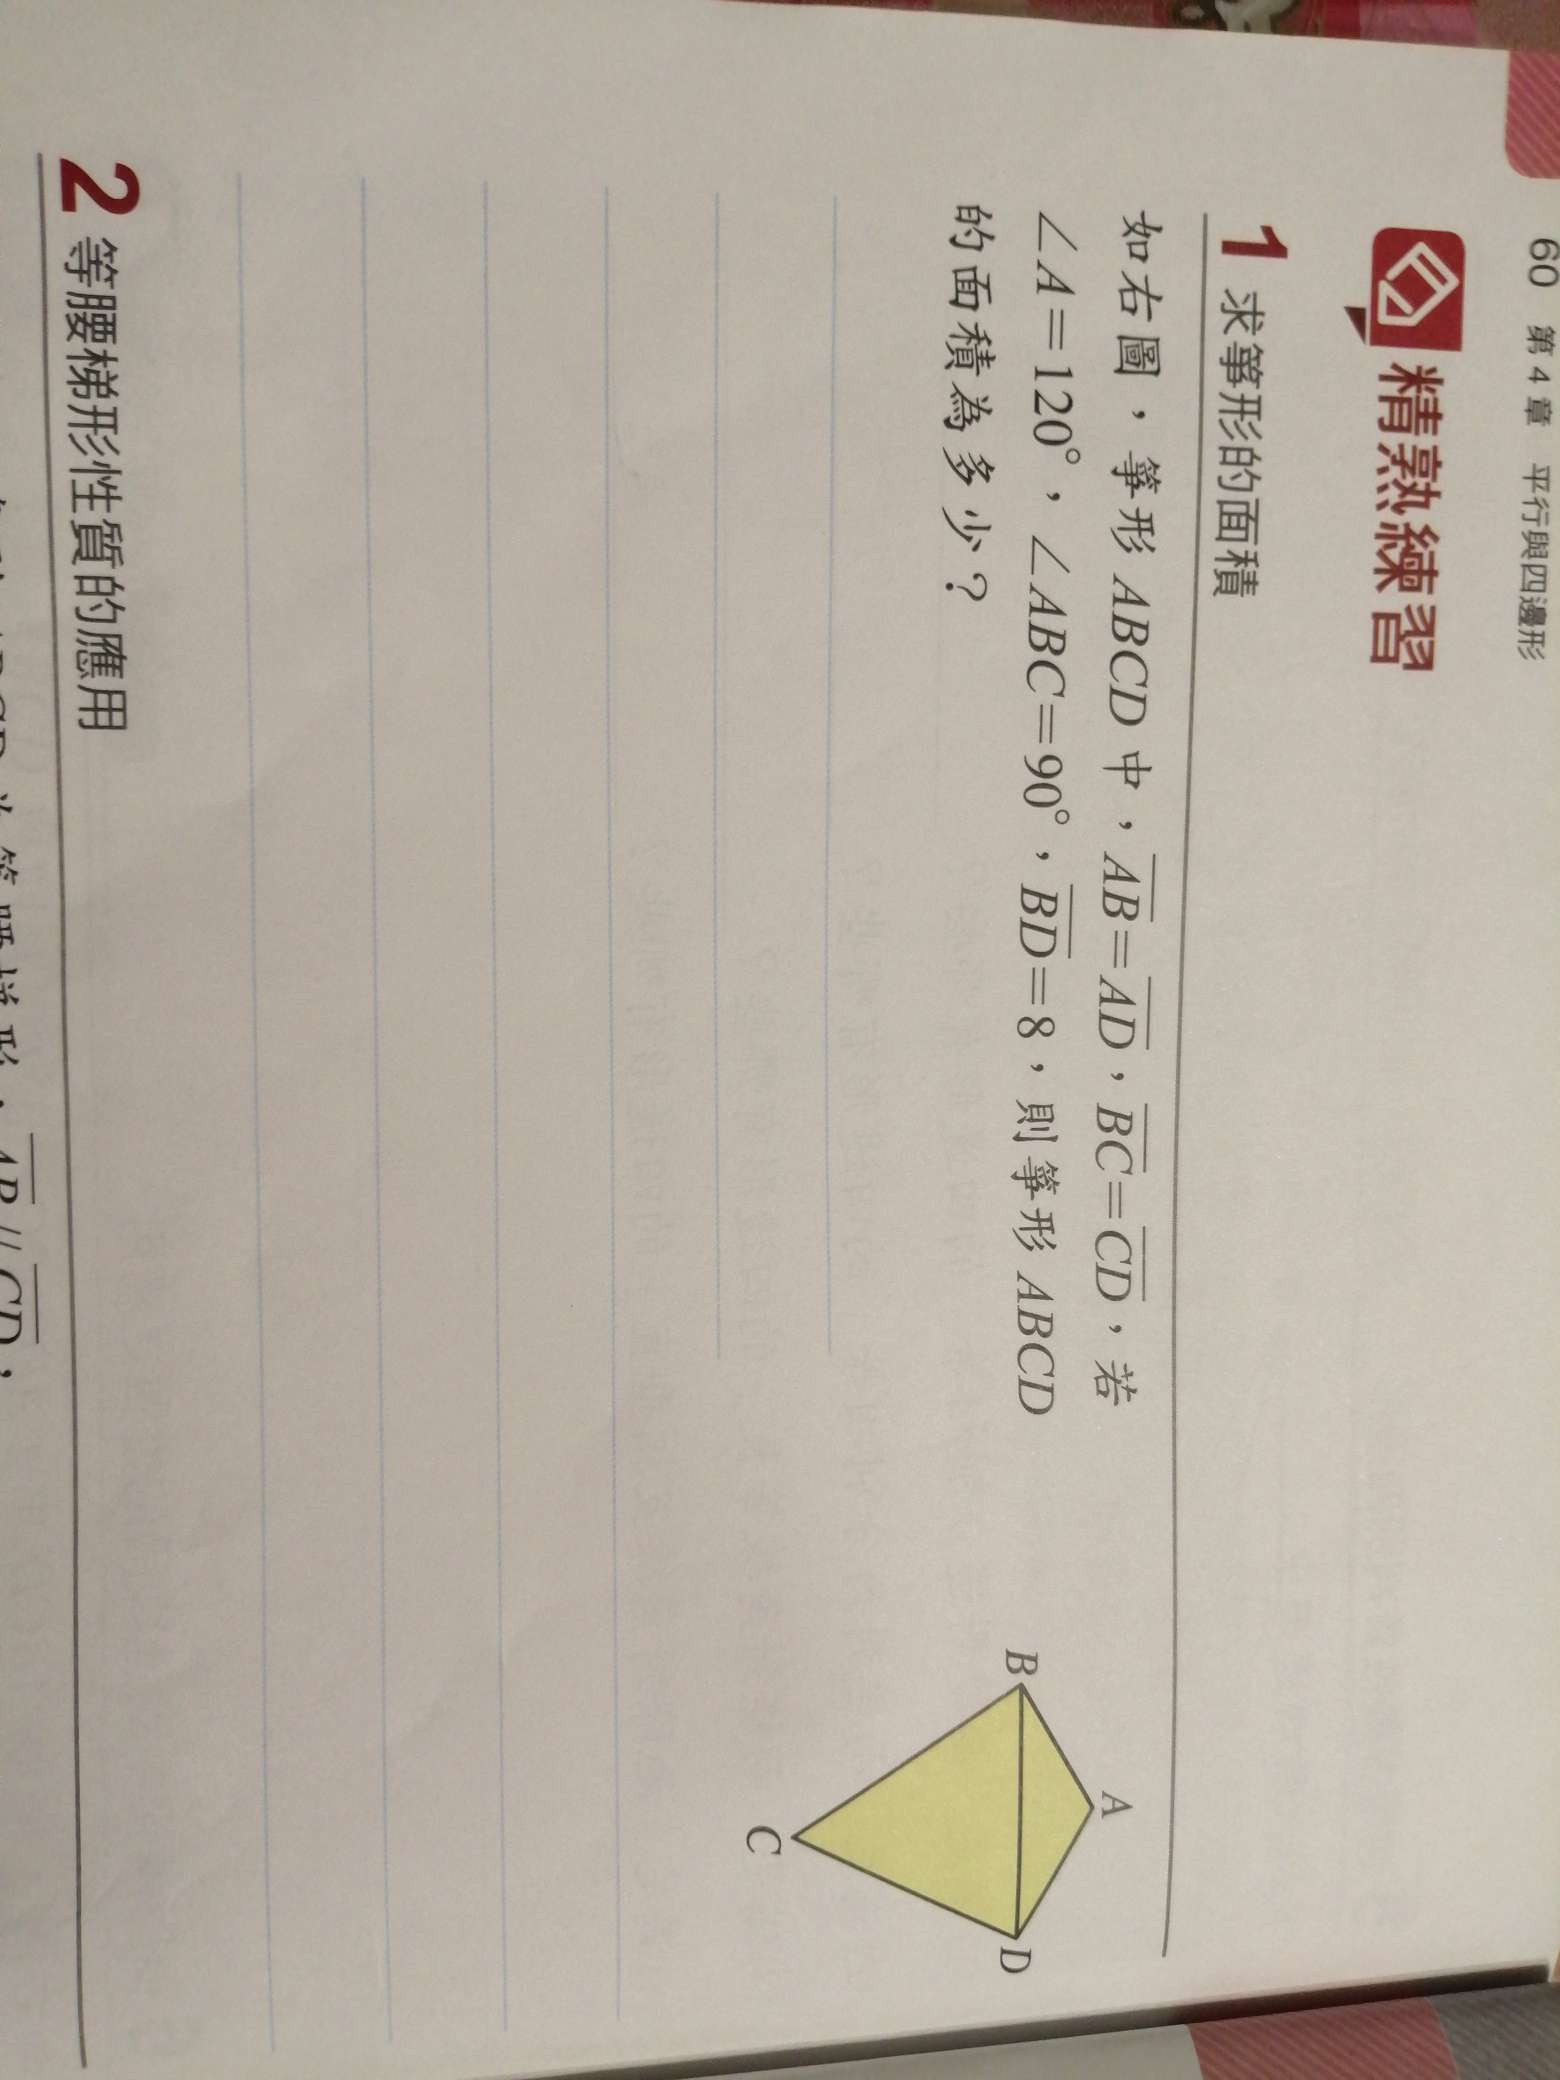 60 第4章 平行與四邊形
精熟練習
1 求箏形的面積
如右圖，箏形 ABCD 中，AB=AD，BC=CD，若
∠A=120°，∠ABC=90°，BD=8，則箏形 ABCD
的面積為多少？
A
B
D
C
2 等腰梯形性質的應用
ABCD 為等腰梯形，AB//CD，